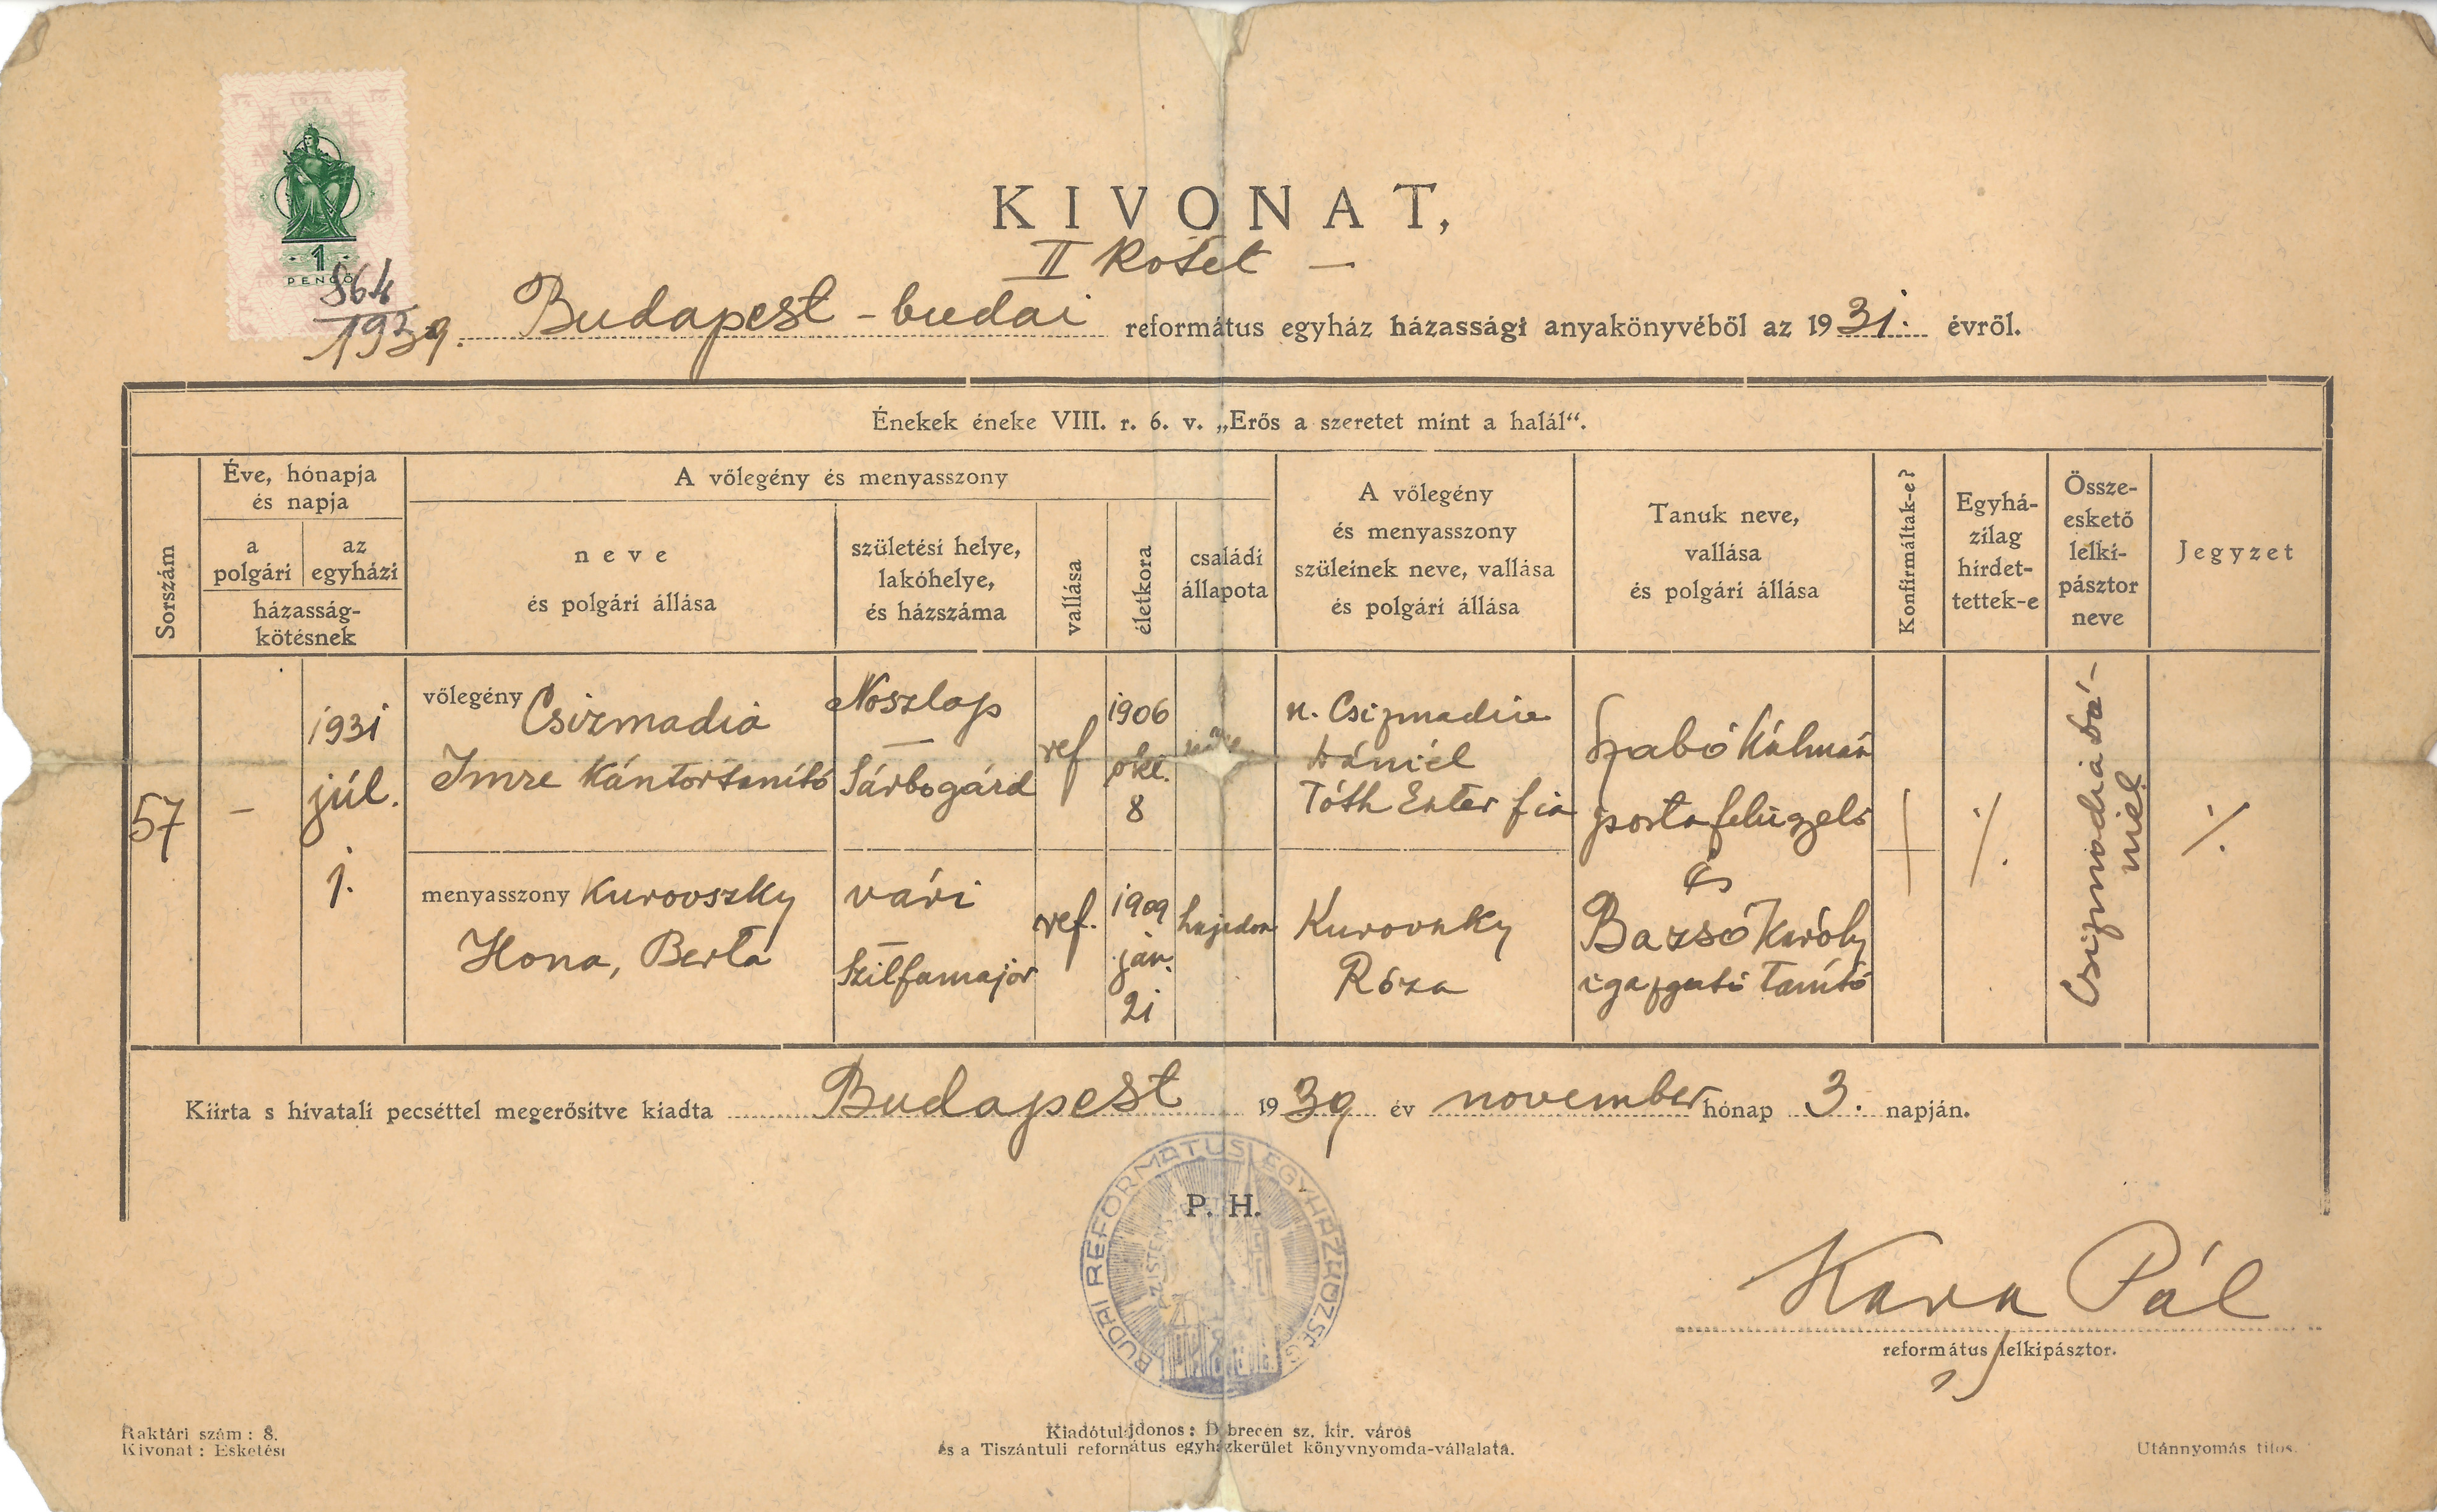 1
PENGŐ
864
1939.
KIVONAT,
II Kötet —
Budapest - budai református egyház házassági anyakönyvéből az 1931. évről.
Énekek éneke VIII. r. 6. v. „Erős a szeretet mint a halál“.
Sorszám
Éve, hónapja
és napja
a
polgári
az
egyházi
házasság-
kötésnek
A vőlegény és menyasszony
neve
és polgári állása
születési helye,
lakóhelye,
és házszáma
vallása
életkora
családi
állapota
A vőlegény
és menyasszony
szüleinek neve, vallása
és polgári állása
Tanuk neve,
vallása
és polgári állása
Konfirmáltak-e?
Egyhá-
zilag
hirdet-
tettek-e
Össze-
eskető
lelki-
pásztor
neve
Jegyzet
57
–
1931
júl.
1.
vőlegény Csizmadia
Imre Kántortanító
Noszlop
—
Sárbogárd
ref
1906
okt.
8
n. Csizmadia
Dániel
Tóth Eszter fia
Szabó Kálmán
postafelügyelő
és
Bazsó Károly
igazgató tanító
menyasszony Kurovszky
Ilona, Berta
vári
—
Szilfamajor
ref.
1909
jan.
21
hajadon
Kurovszky
Róza
Csizmadia Dá-
niel
Kiirta s hivatali pecséttel megerősitve kiadta Budapest 1939 év november hónap 3. napján.
P. H.
BUDAI REFORMÁTUS EGYHÁZKÖZSÉG
Kara Pál
református lelkipásztor.
Raktári szám : 8.
Kivonat : Esketési
Kiadótulajdonos : Debrecen sz. kir. város
és a Tiszántuli református egyházkerület könyvnyomda-vállalata.
Utánnyomás tilos.